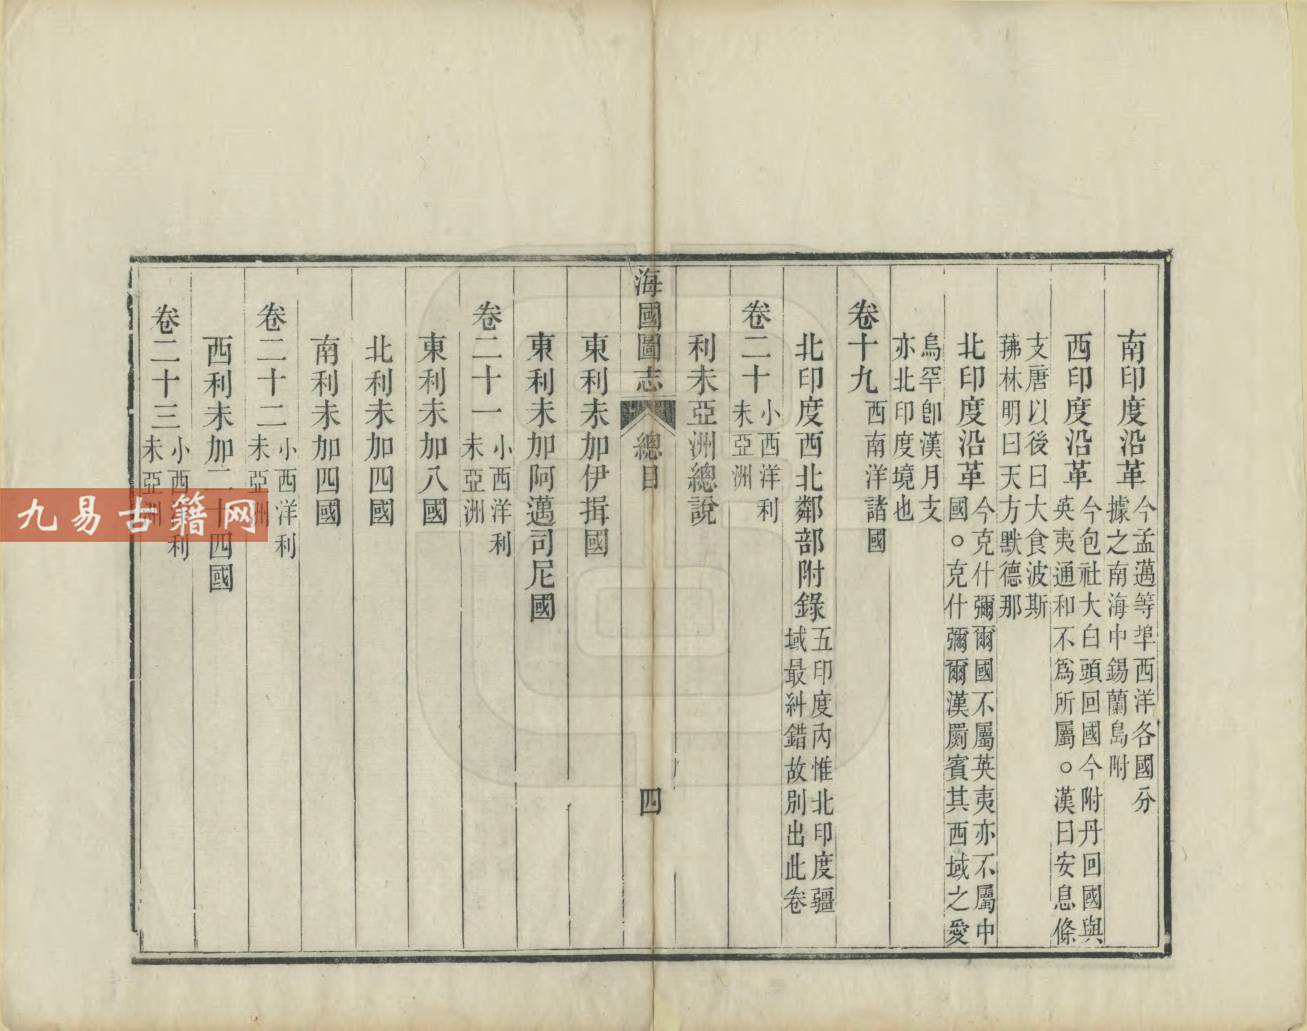 南印度沿革 今孟邁等埠西洋各國分據之南海中錫蘭島附
西印度沿革 今包社大白頭回國今附丹回國與英夷通和不爲所屬。漢曰安息條
支唐以後曰大食波斯茀林明曰天方默德那
北印度沿革 今克什彌爾國不屬英夷亦不屬中國。克什彌爾漢罽賓其西域之愛
烏罕卽漢月支亦北印度境也
卷十九 西南洋諸國
北印度西北鄰部附錄 五印度內惟北印度疆域最糾錯故別出此卷
卷二十 小西洋利未亞洲
利未亞洲總說
海國圖志 總目 四
東利未加伊揖國
東利未加阿邁司尼國
卷二十一 小西洋利未亞洲
東利未加八國
北利未加四國
南利未加四國
卷二十二 小西洋利未亞洲
西利未加二十四國
卷二十三 小西洋利未亞洲
九易古籍网